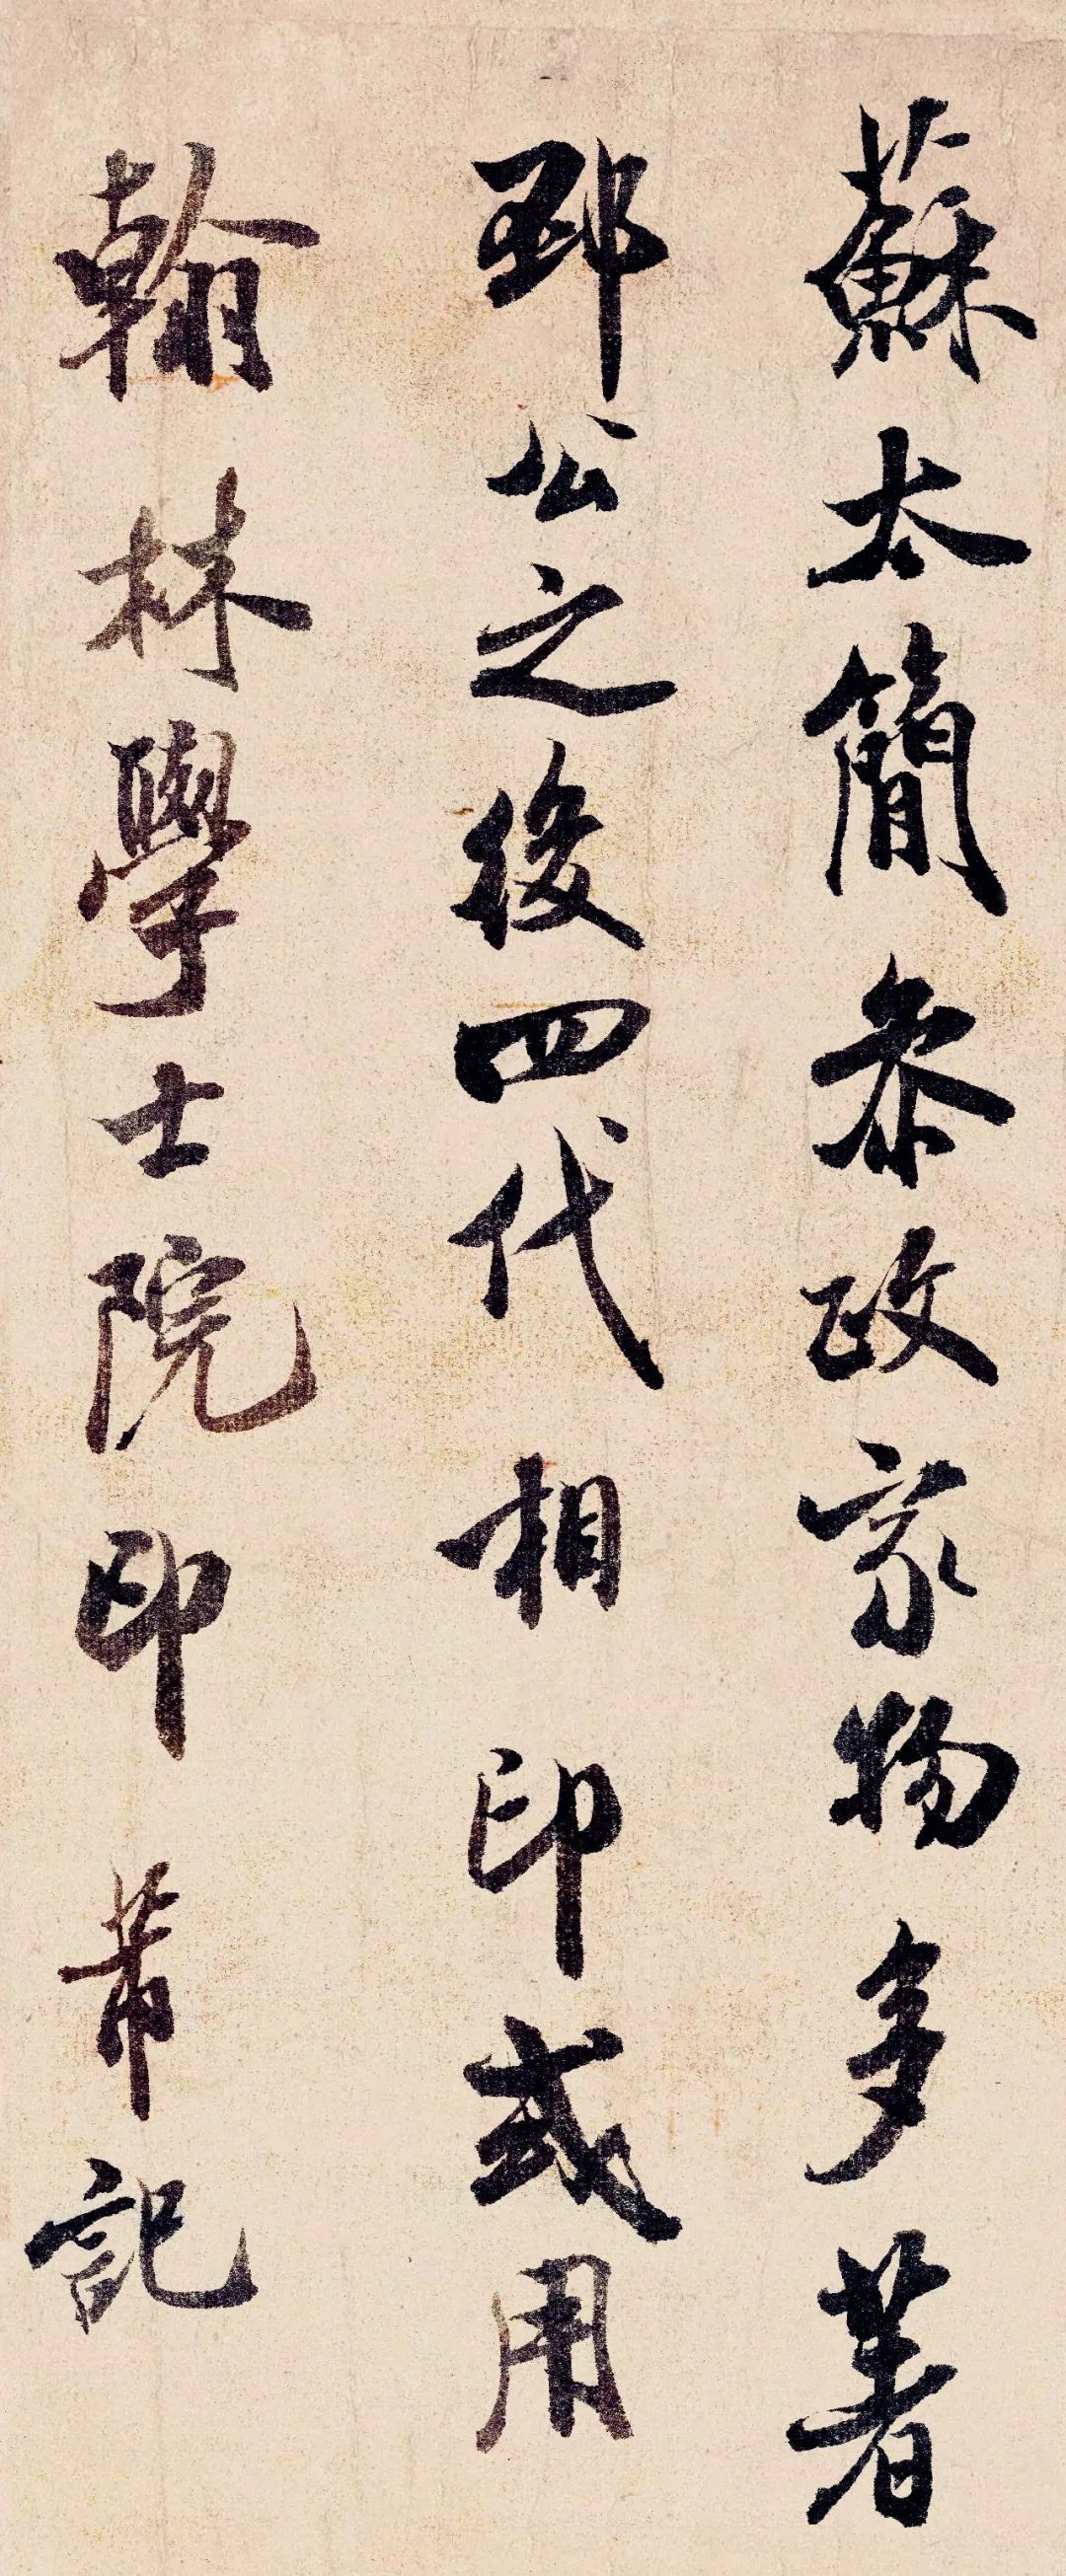 蘇太簡參政家物多著
邳公之後四代相印或用
翰林學士院印芾記